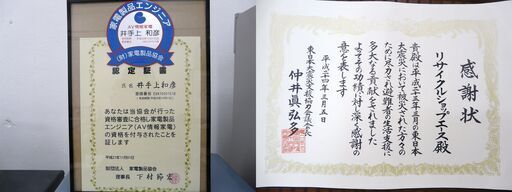 家電製品エンジニア
AV情報家電
井手上 和彦
(財)家電製品協会
認定証書
氏名 井手上和彦
あなたは当協会が行った
資格審査に合格し家電製品
エンジニア(AV情報家電)
の資格を付与されたことを
証します
平成21年11月01日
財団法人 家電製品協会
理事長 下村節宏
感謝状
リサイクルショップエース殿
貴殿は平成二十三年三月の東日本
大震災において被災された方々の
ために尽力され避難者の生活支援に
多大なる貢献をされました
よってその功績に対し深く感謝の
意を表します
平成二十四年三月五日
仲井眞弘多